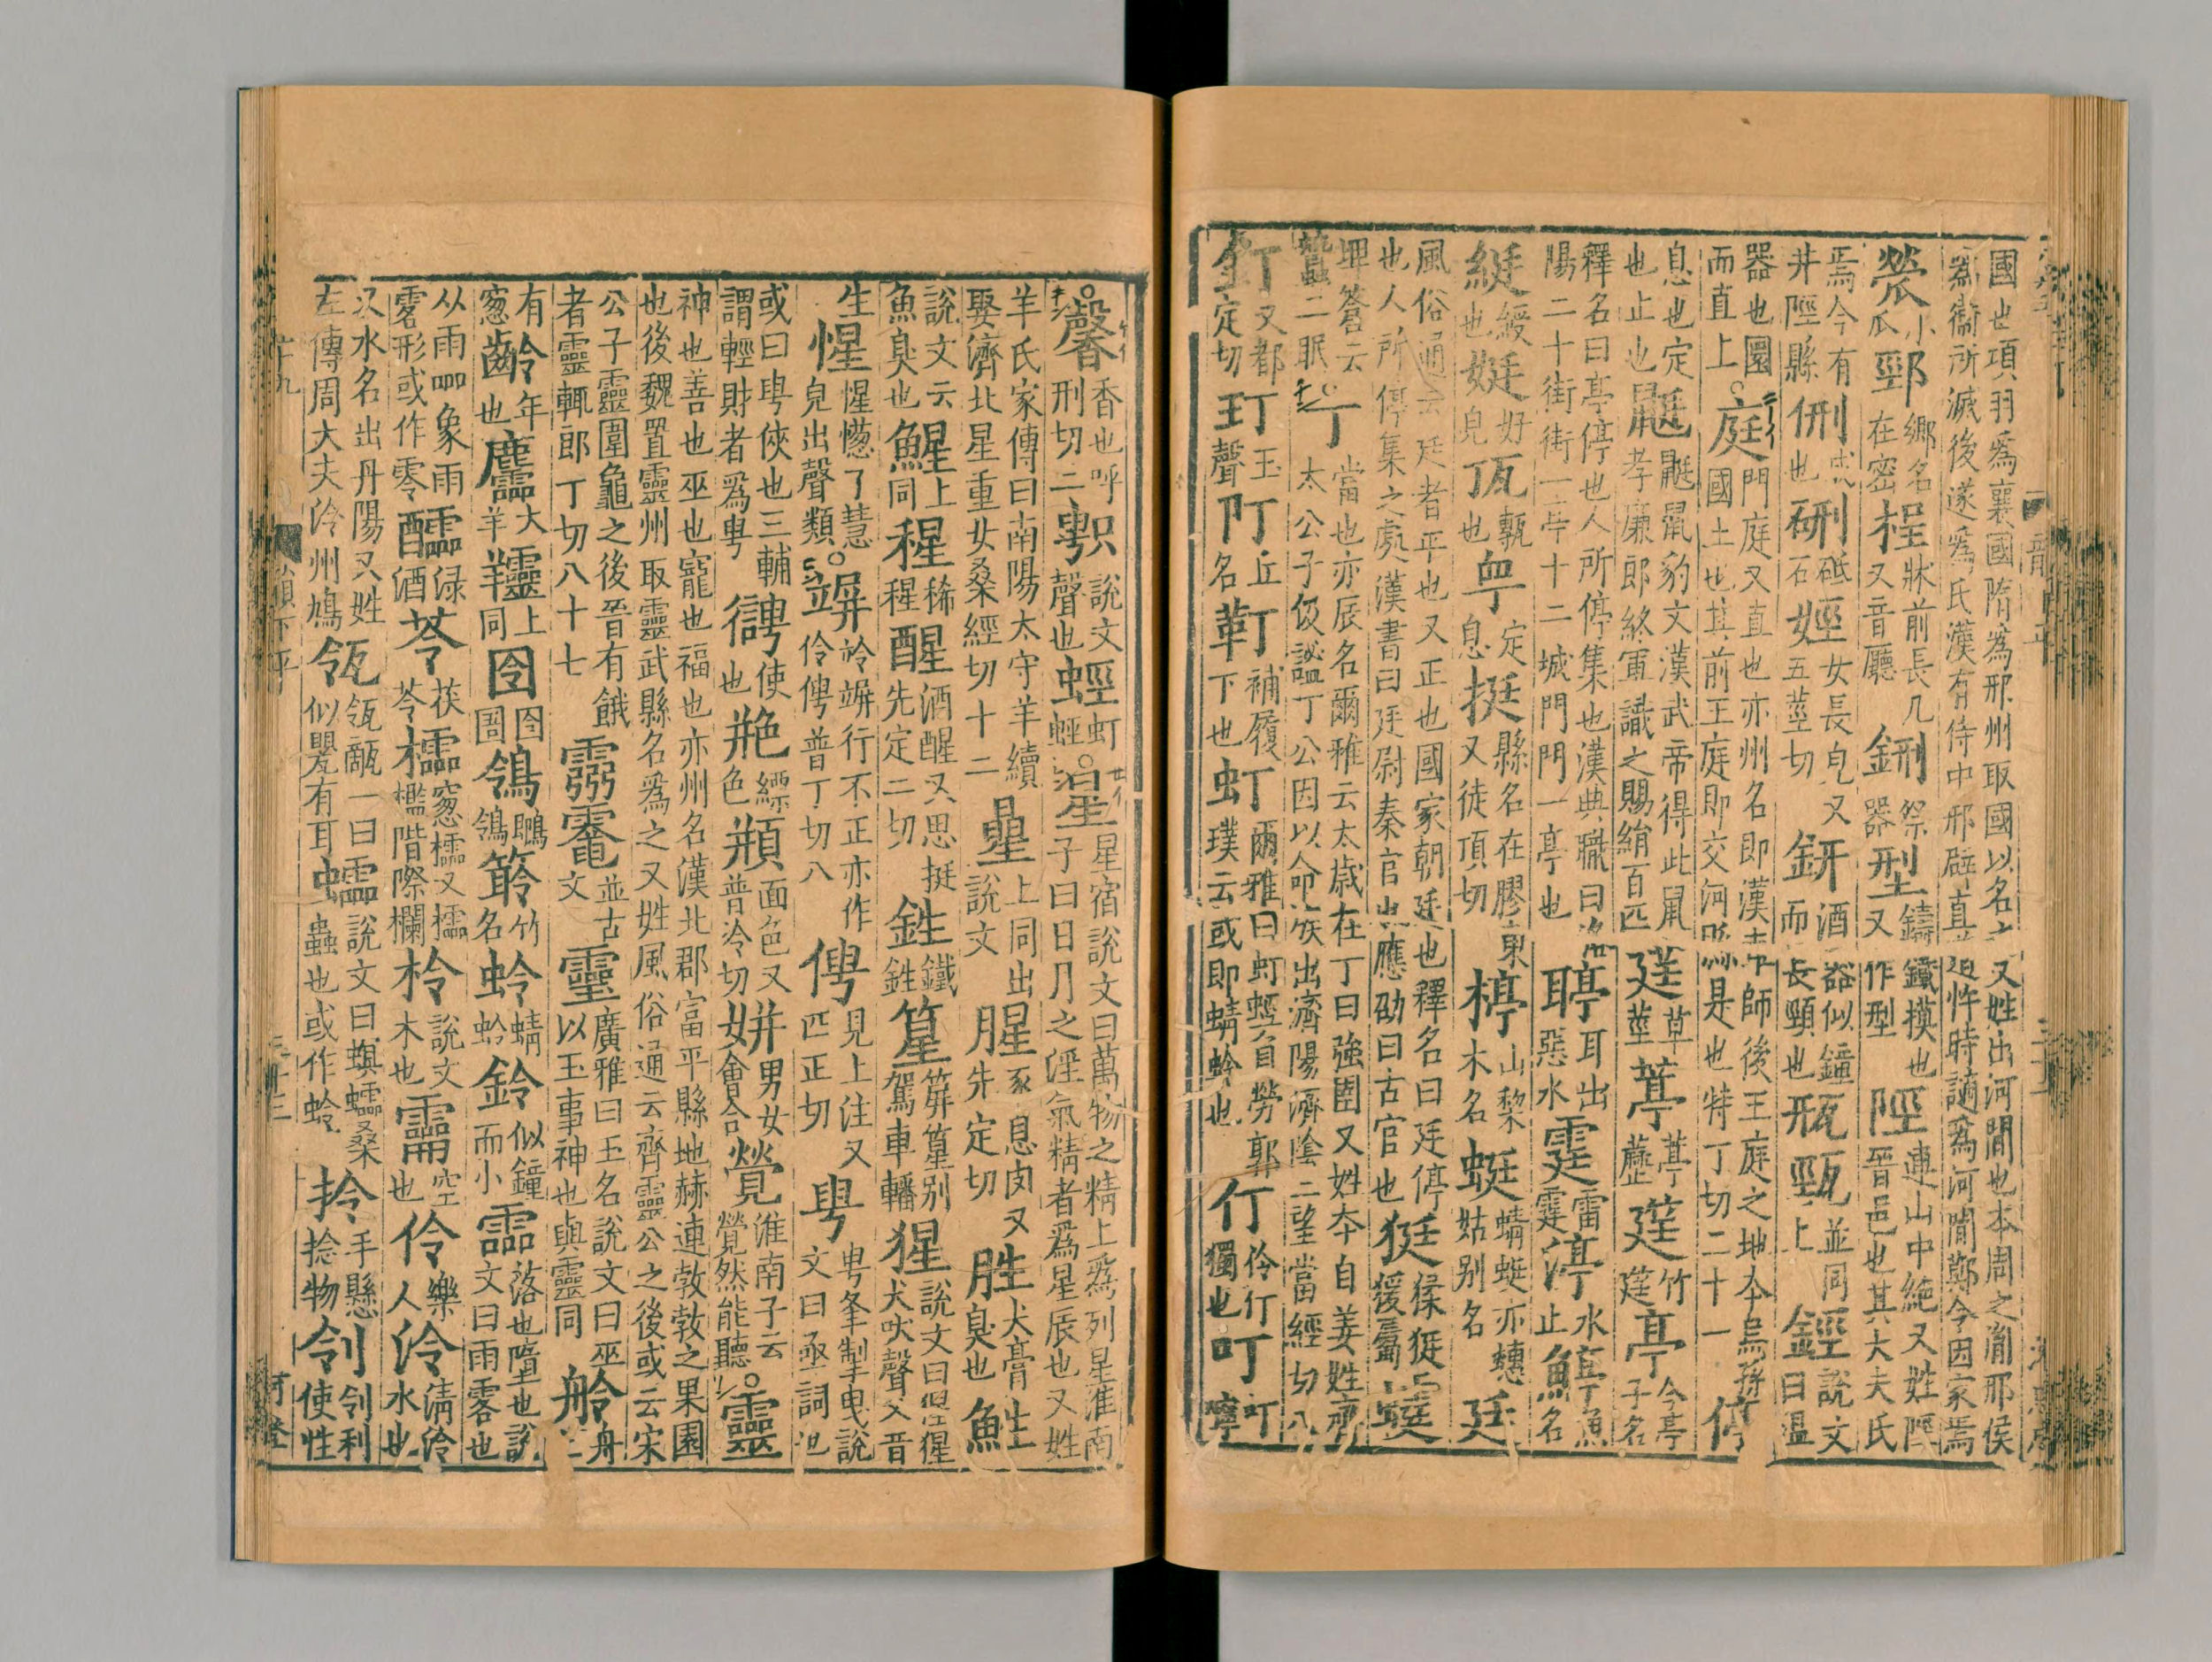 國也項羽爲襄國隋爲邢州取國以名之又姓出河間也本周之胤邢侯
爲衛所滅後遂爲氏漢有侍中邢辟直道忤時謫爲河間鄚令因家焉
熒小瓜 鄉名在密桯牀前長几又音廳鉶祭器型鑄鐵模也又作型陘連山中絕又姓陘晉邑也其大夫氏
焉今有井陘縣侀成也硎砥石娙女長皃又五莖切鈃酒器似鐘而長頸也 並同上鋞說文曰溫
器也圜而直上○庭門庭又直也亦州名即漢車師後王庭之地本烏孫國土也其前王庭即交河縣是也特丁切二十一停
息也定也止也鼮鼮鼠豹文漢武帝得此鼠孝廉郎終軍識之賜絹百匹莛草莖葶葶藶筳竹筳亭今亭子名
釋名曰亭停也人所停集也漢典職曰洛陽二十街街一亭十二城門門一亭也聤耳出惡水霆雷霆渟水止䱓魚名
綎綬也娗好皃 甎也 定息挺縣名在膠東又徒頂切楟山棃木名蜓蜻蜓亦蟪蛄別名廷
風俗通云廷者平也又正也國家朝廷也釋名曰廷停也人所停集之處漢書曰廷尉秦官也應劭曰古官也㹶猱㹶猨屬䗴
埤蒼云䗴二眠○丁當也亦辰名爾雅云太歲在丁曰強圉又姓本自姜姓齊太公子伋謚丁公因以命族出濟陽濟陰二望當經切八
釘又都定切玎玉聲阠丘名靪補履下也虰爾雅曰虰蛵負勞郭璞云或即蜻蛉也仃伶仃獨也叮叮嚀
○馨香也呼刑切二 說文聲也蛵虰蛵○星星宿說文曰萬物之精上爲列星淮南子曰日月之淫氣精者爲星辰也又姓
羊氏家傳曰南陽太守羊續娶濟北星重女桑經切十二曐上同出說文腥豕息肉又先定切胜犬膏臭也鮏
說文云魚臭也鯹上同 稀 醒酒醒又思挺先定二切鉎鐵鉎篂笄篂別駕車轓猩說文曰猩猩犬吠聲又音
生惺惺憽了慧皃出聲類○竮竛竮行不正亦作伶俜普丁切八俜見上注又匹正切甹甹夆掣曳說文曰亟詞也
或曰甹俠也三輔謂輕財者爲甹 使也艵縹色頩面色又普泠切姘男女會合覮淮南子云覮然能聽○靈
神也善也巫也寵也福也亦州名漢北郡富平縣地赫連勃勃之果園也後魏置靈州取靈武縣名爲之又姓風俗通云齊靈公之後或云宋
公子靈圍龜之後晉有餓者靈輒郎丁切八十七 並古文靈廣雅曰玉名說文曰巫以玉事神也與靈同舲舟上
有窻齡年也麢大羊 上同囹囹圄鴒䳭鴒笭竹名蛉蜻蛉鈴似鐘而小霝落也墮也說文曰雨零也
从雨吅象雨零形或作零醽渌酒苓茯苓櫺窻櫺又櫺檻階際欄柃說文木也 空也伶樂人泠清泠水也
又水名出丹陽又姓左傳周大夫泠州鳩瓴瓴甋一曰似甖有耳 說文曰螟 桑蟲也或作蛉拎手懸捻物刢刢利使性